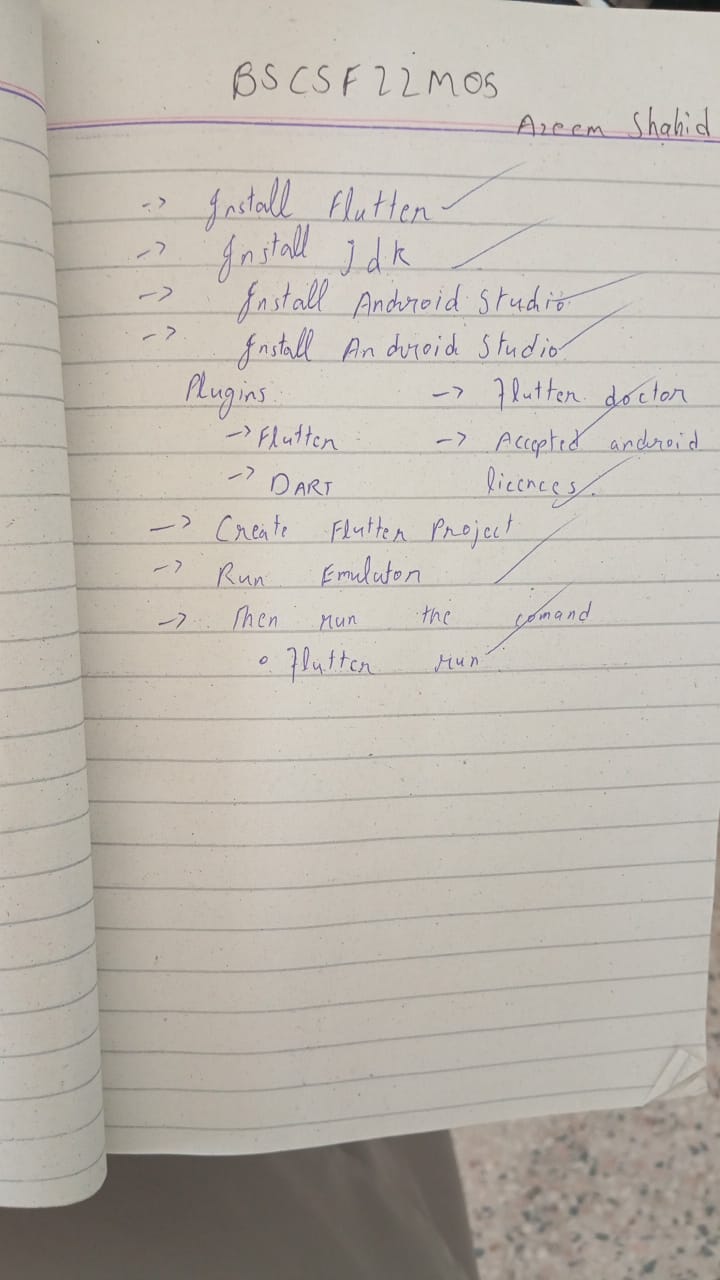 BSCSF22M05
Azeem Shahid
-> Install Flutter
-> Install Jdk
-> Install Android Studio
-> Install Android Studio
Plugins
-> Flutter
-> DART
-> Flutter doctor
-> Accepted android
licences.
-> Create Flutter Project
-> Run Emulator
-> Then run the comand
o Flutter run